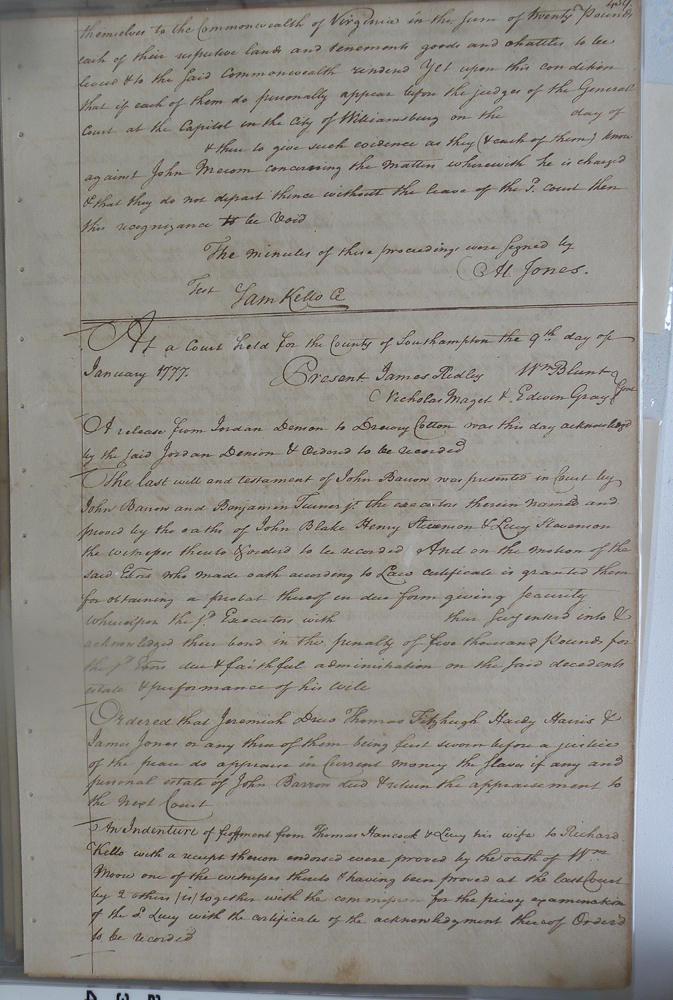 themselves to the Commonwealth of Virginia in the sum of twenty Pounds
each of their respective lands and tenements goods and chattles to be
levied & to the said Commonwealth rendered Yet upon this condition
that if each of them do personally appear before the judges of the General
Court at the Capitol in the City of Williamsburg on the day of
& there to give such evidence as they (& each of them) know
against John Merom concerning the matter wherewith he is charged
& that they do not depart thence without the leave of the Sd. court then
this recognizance to be Void
The minutes of these proceedings were signed by
Al Jones.
Test Sam Kello C
At a Court held for the County of Southampton the 9th day of
January 1777.
Present James Ridley Wm Blunt
Nicholas Maget & Edwin Gray Gent
A release from Jordan Denson to Drewry Cotton was this day acknowledged
by the said Jordan Denson & Ordered to be recorded
The last will and testament of John Barrow was presented in Court by
John Barrow and Benjamin Turner jr. the executors therein named and
proved by the oaths of John Blake Henry Stevenson & Lucy Stevenson
the witnesses thereto & orderd to be recorded And on the motion of the
said Exors who made oath according to Law certificate is granted them
for obtaining a probat thereof in due form giving security
whereupon the sd. Executors with their entered into &
acknowledged their bond in the penalty of five thousand Pounds for
the sd. Exors due & faithful administration on the said decedents
estate & performance of his will
Ordered that Jeremiah Drew Thomas Fitzhugh Hardy Harris &
James Jones or any three of them being first sworn before a justice
of the peace do appraise in Current money the slaves if any and
personal estate of John Barrow decd & return the appraisement to
the next Court
An Indenture of feoffment from Thomas Hancock & Lucy his wife to Richard
Kello with a receipt thereon endorsed were proved by the oath of Wm
Moore one of the witnesses thereto & having been proved at the last Court
by 2 others is together with the commission for the privy examination
of the sd Lucy with the certificate of the acknowledgment thereof Orderd
to be recorded